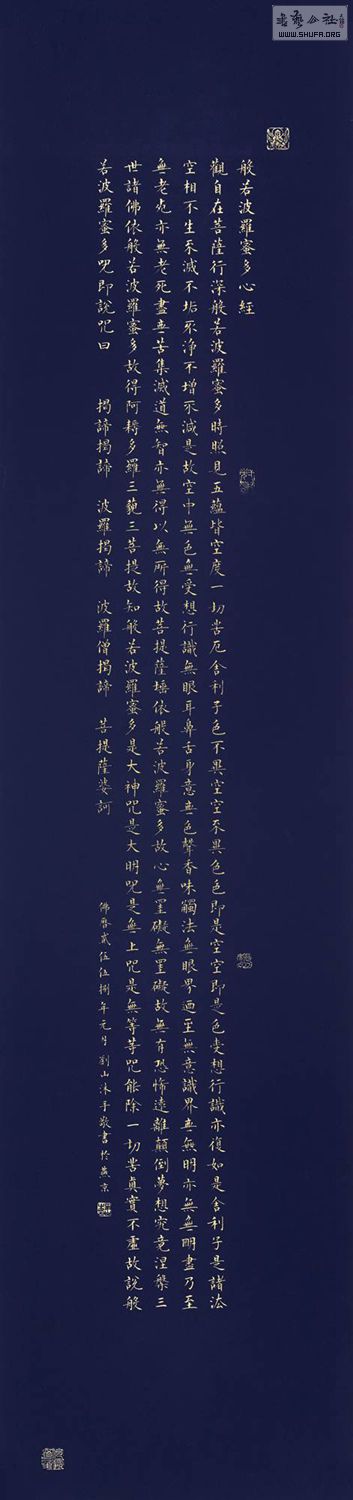 般若波羅蜜多心經
觀自在菩薩行深般若波羅蜜多時照見五蘊皆空度一切苦厄舍利子色不異空空不異色色即是空空即是色受想行識亦復如是舍利子是諸法
空相不生不滅不垢不淨不增不減是故空中無色無受想行識無眼耳鼻舌身意無色聲香味觸法無眼界廼至無意識界無無明亦無無明盡乃至
無老死亦無老死盡無苦集滅道無智亦無得以無所得故菩提薩埵依般若波羅蜜多故心無罣礙無罣礙故無有恐怖遠離顛倒夢想究竟涅槃三
世諸佛依般若波羅蜜多故得阿耨多羅三藐三菩提故知般若波羅蜜多是大神咒是大明咒是無上咒是無等等咒能除一切苦真實不虛故說般
若波羅蜜多咒即說咒曰 揭諦揭諦 波羅揭諦 波羅僧揭諦 菩提薩婆訶
佛曆貳伍伍捌年元月劉山沐手敬書於燕京
WWW.SHUFA.ORG